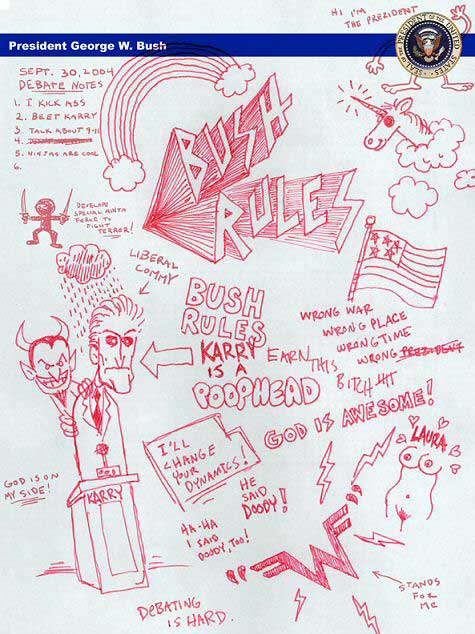 HI I'M
THE PRESIDENT
SEAL OF THE PRESIDENT OF THE UNITED STATES
President George W. Bush
SEPT. 30, 2004
DEBATE NOTES
1. I KICK ASS
2. BEET KARRY
3. TALK ABOUT 9-11
4.
5. NINJAS ARE COOL
6.
BUSH
RULES
DEVELOPE
SPECIAL NINJA
FORCE TO
FIGHT
TERROR!
LIBERAL
COMMY
BUSH
RULES
KARRY
IS A
POOPHEAD
WRONG WAR
WRONG PLACE
WRONG TIME
WRONG PREZIDENT
EARN THIS
BITCH TIT
GOD IS AWESOME!
LAURA
I'LL
CHANGE
YOUR
DYNAMICS!
GOD IS ON
MY SIDE!
KARRY
HE
SAID
DOODY!
HA-HA
I SAID
DOODY, TOO!
"W"
STANDS
FOR
ME
DEBATING
IS HARD.